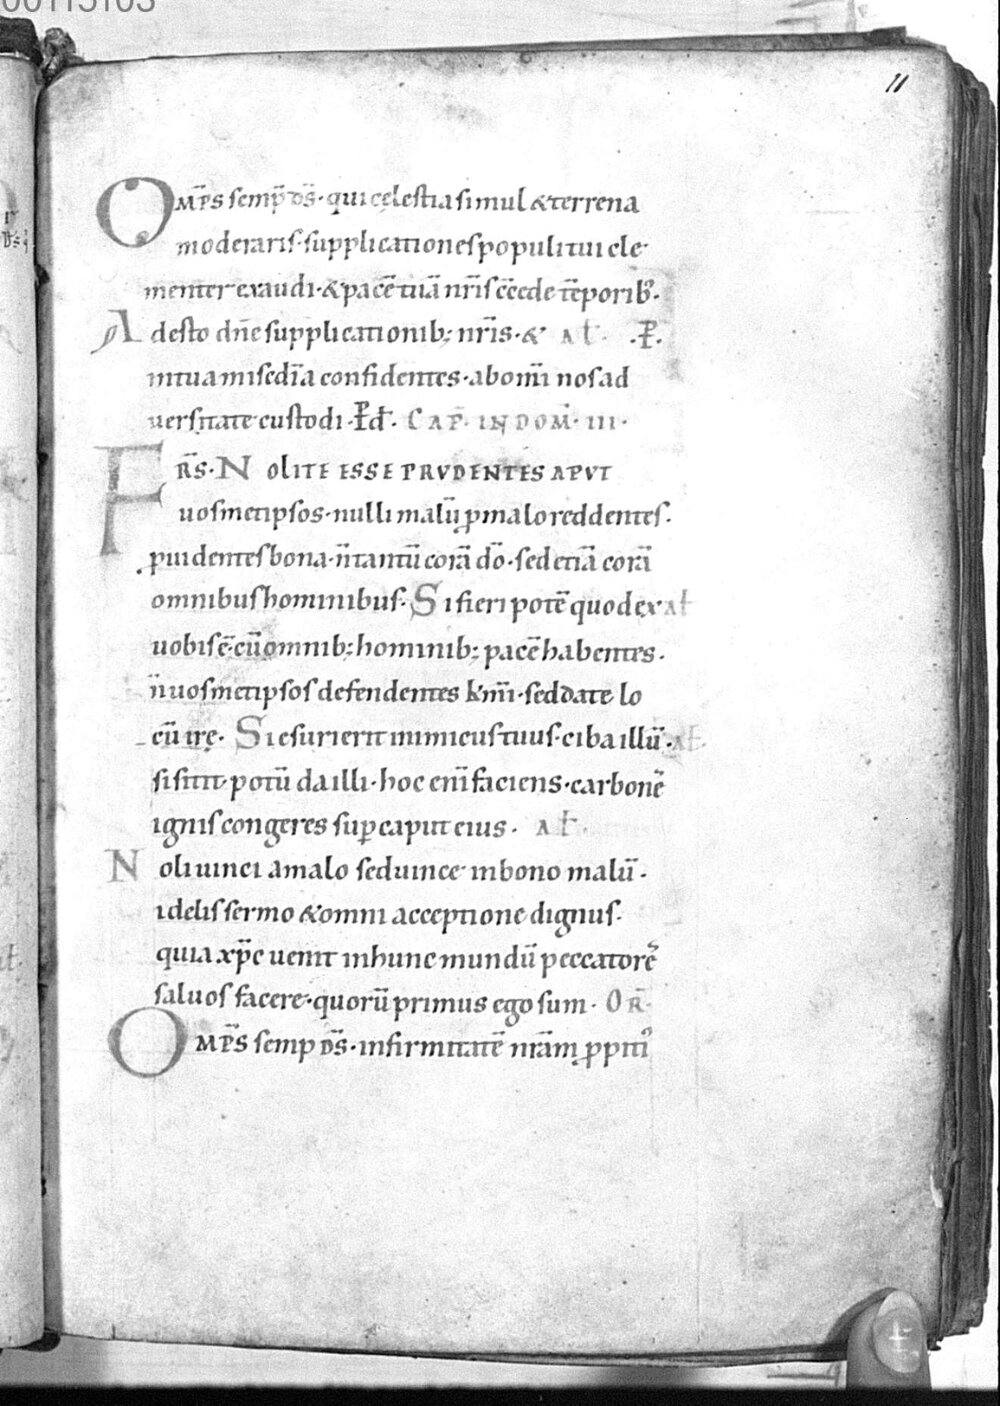 00115103
11
Omp̄s semp̄ ds̄· qui cęlestia simul & terrena
moderaris· supplicationes populi tui cle
menter exaudi· & pacē tuā nr̄is c̄cede tēporib᷒·
Adesto dn̄e supplicationib; nr̄is· & al̄· .P̄.
in tua mis̄edīa confidentes· ab om̄i nos ad
uersitate custodi· P̄d̄· CAP̄· IN DOM̄· III·
FRS̄· NOLITE ESSE PRVDENTES APVT
uosmetipsos· nulli malū ꝓ malo reddentes·
ꝓuidentes bona· n̄ tantū corā dō· sed etiā corā
omnibus hominibus· Si fieri potē quod ex al̄
uobis ē· cū omnib; hominib; pacē habentes·
n̄ uosmetipsos defendentes km̄i· sed date lo
cū irę· Si esurierit inimicus tuus· ciba illū· al̄·
si sitit potū da illi· hoc enī faciens· carbonē
ignis congeres suꝑ caput eius· al̄·
Noli uinci a malo sed uince in bono malū·
idelis sermo & omni acceptione dignus·
quia xp̄c uenit in hunc mundū peccatorē
saluos facere· quorū primus ego sum· OR̄·
Omp̄s semp ds̄· infirmitatē nr̄am ꝓpiti᷒